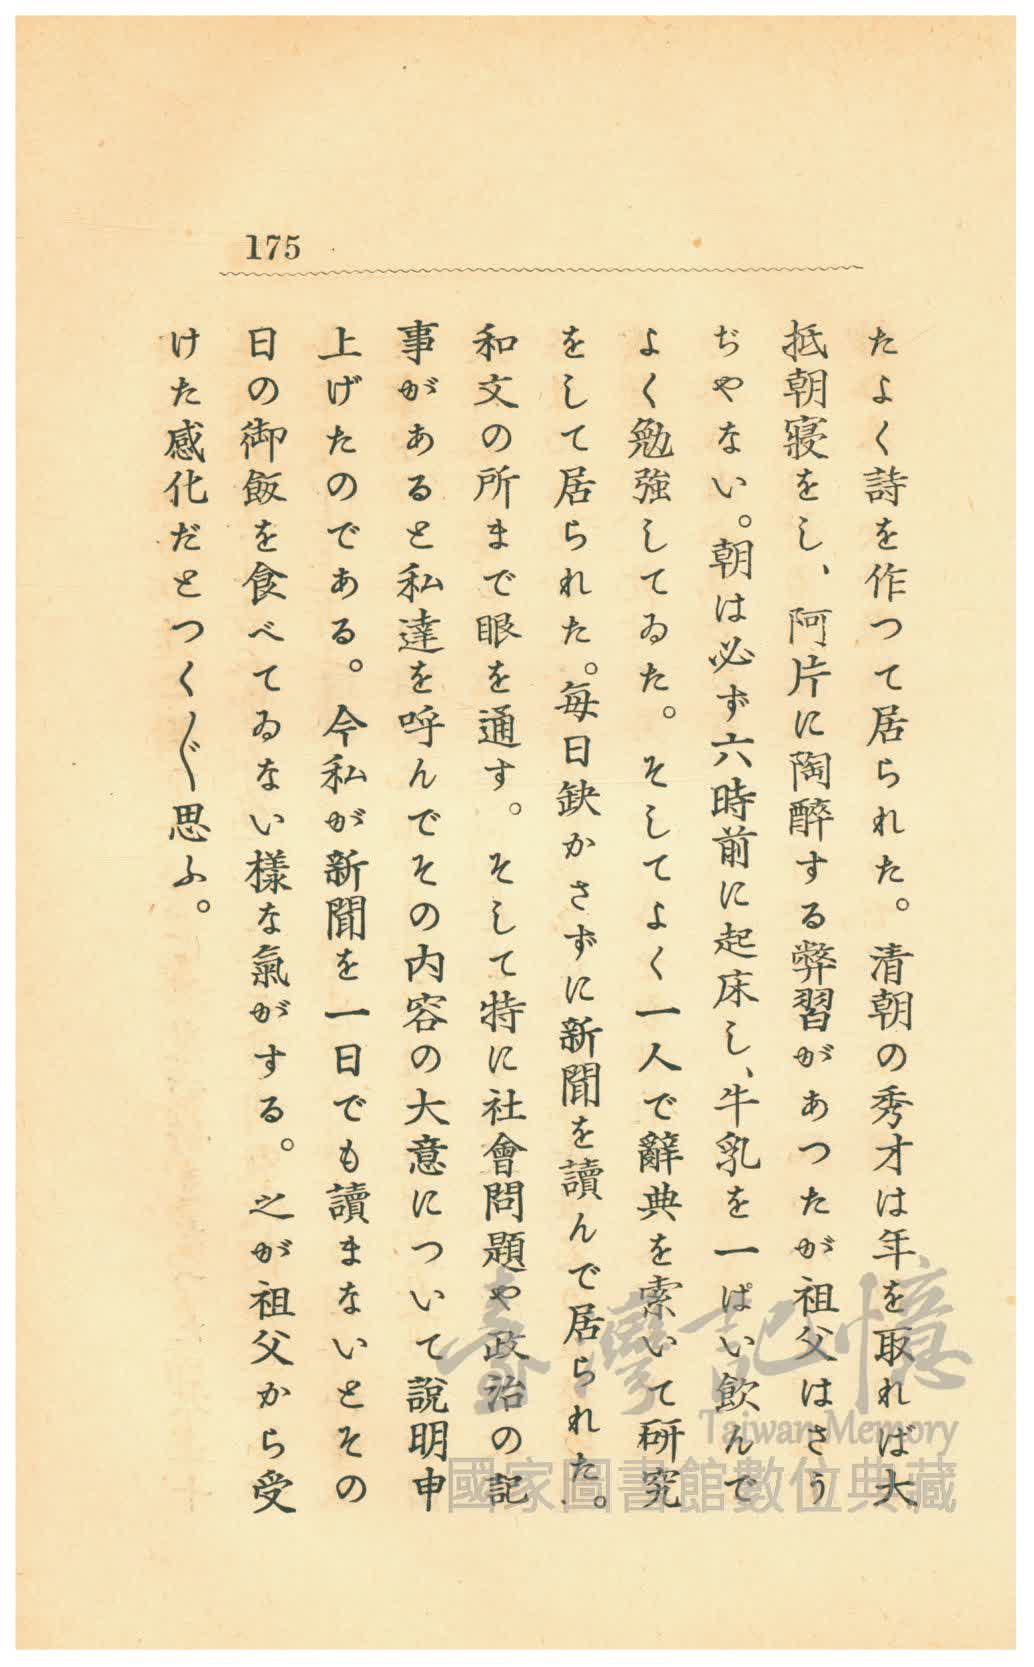 175
たよく詩を作つて居られた。清朝の秀才は年を取れば大
抵朝寢をし、阿片に陶醉する弊習があつたが祖父はさう
ぢやない。朝は必ず六時前に起床し、牛乳を一ぱい飮んで
よく勉強してゐた。そしてよく一人で辭典を索いて研究
をして居られた。毎日缺かさずに新聞を讀んで居られた。
和文の所まで眼を通す。そして特に社會問題や政治の記
事があると私達を呼んでその内容の大意について說明申
上げたのである。今私が新聞を一日でも讀まないとその
日の御飯を食べてゐない樣な氣がする。之が祖父から受
けた感化だとつく〲思ふ。
臺灣記憶
Taiwan Memory
國家圖書館數位典藏